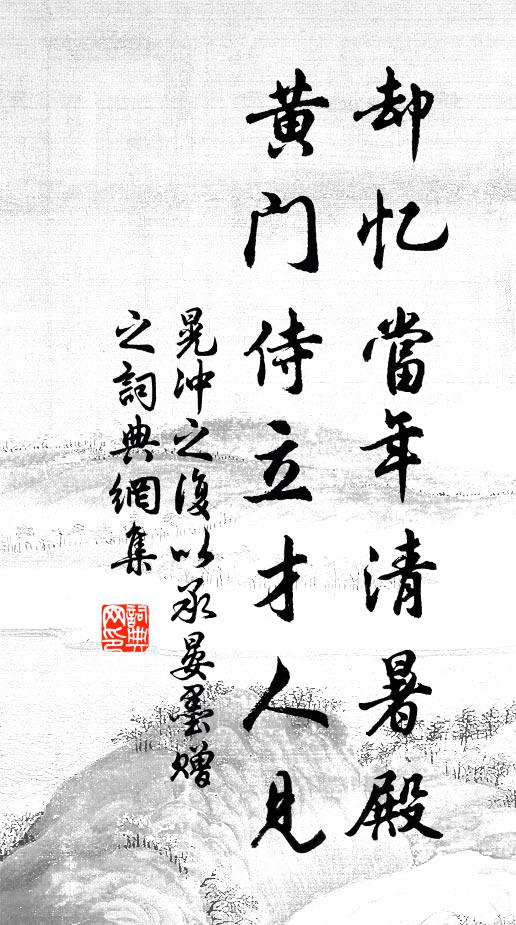 却忆當年清暑殿
黄门侍立才人見
晁沖之復以承晏墨赠
之詞典網集
詞典网印